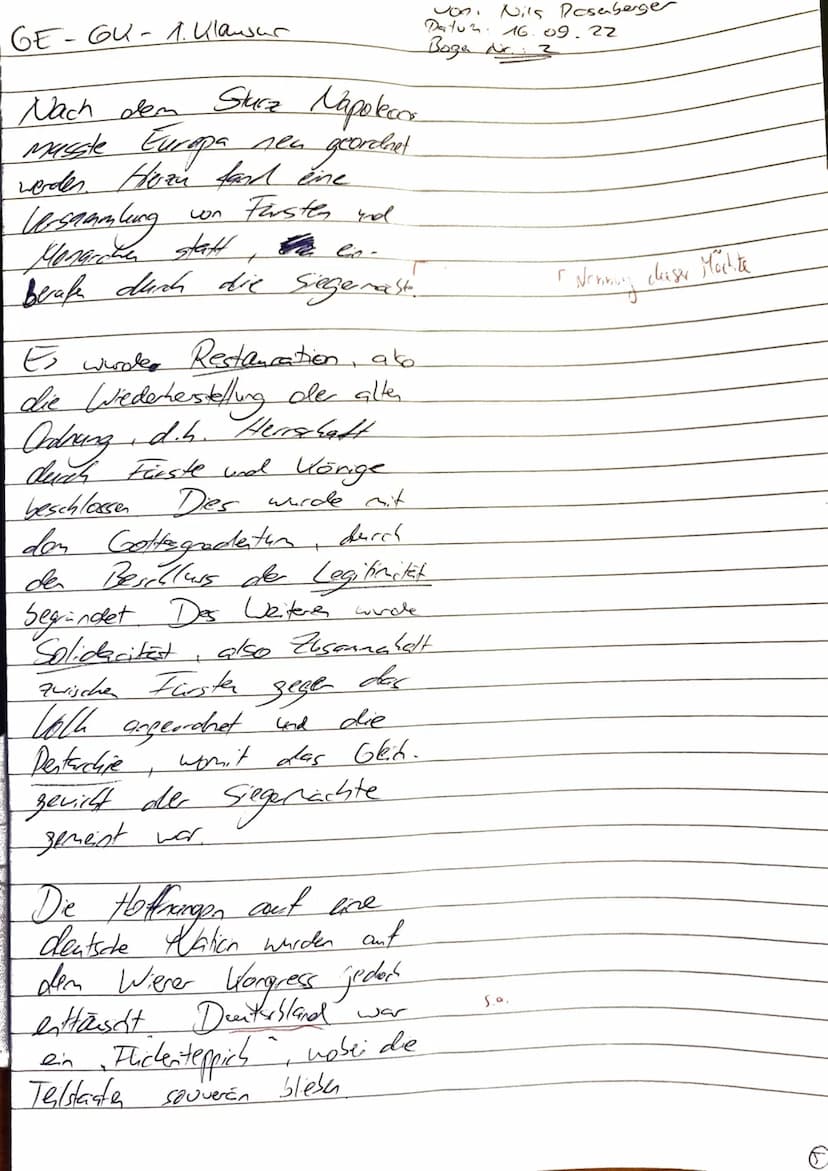 GE - GK - 1. Klausur
von: Nils Rosenberger
Datum: 16.09.22
Bogen Nr.: 2
Nach dem Sturz Napoleons
musste Europa neu geordnet
werden. Hierzu fand eine
Versammlung von Fürsten und
Monarchen statt, ein-
berufen durch die Siegermächte.
Nennung dieser Mächte
Es wurde Restauration, also
die Wiederherstellung der alten
Ordnung, d.h. Herrschaft
durch Fürste und Könige
beschlossen. Dies wurde mit
dem Gottesgnadentum, durch
den Beschluss der Legitimität
begründet. Des Weiteren wurde
Solidarität, also Zusammenhalt
zwischen Fürsten gegen das
Volk angeordnet und die
Pentarchie, womit das Gleich-
gewicht der Siegermächte
gemeint war.
Die Hoffnungen auf eine
deutsche Nation wurden auf
dem Wiener Kongress jedoch
enttäuscht. Deutschland war
s.o.
ein „Flickenteppich“, wobei die
Teilstaaten souverän blieben.